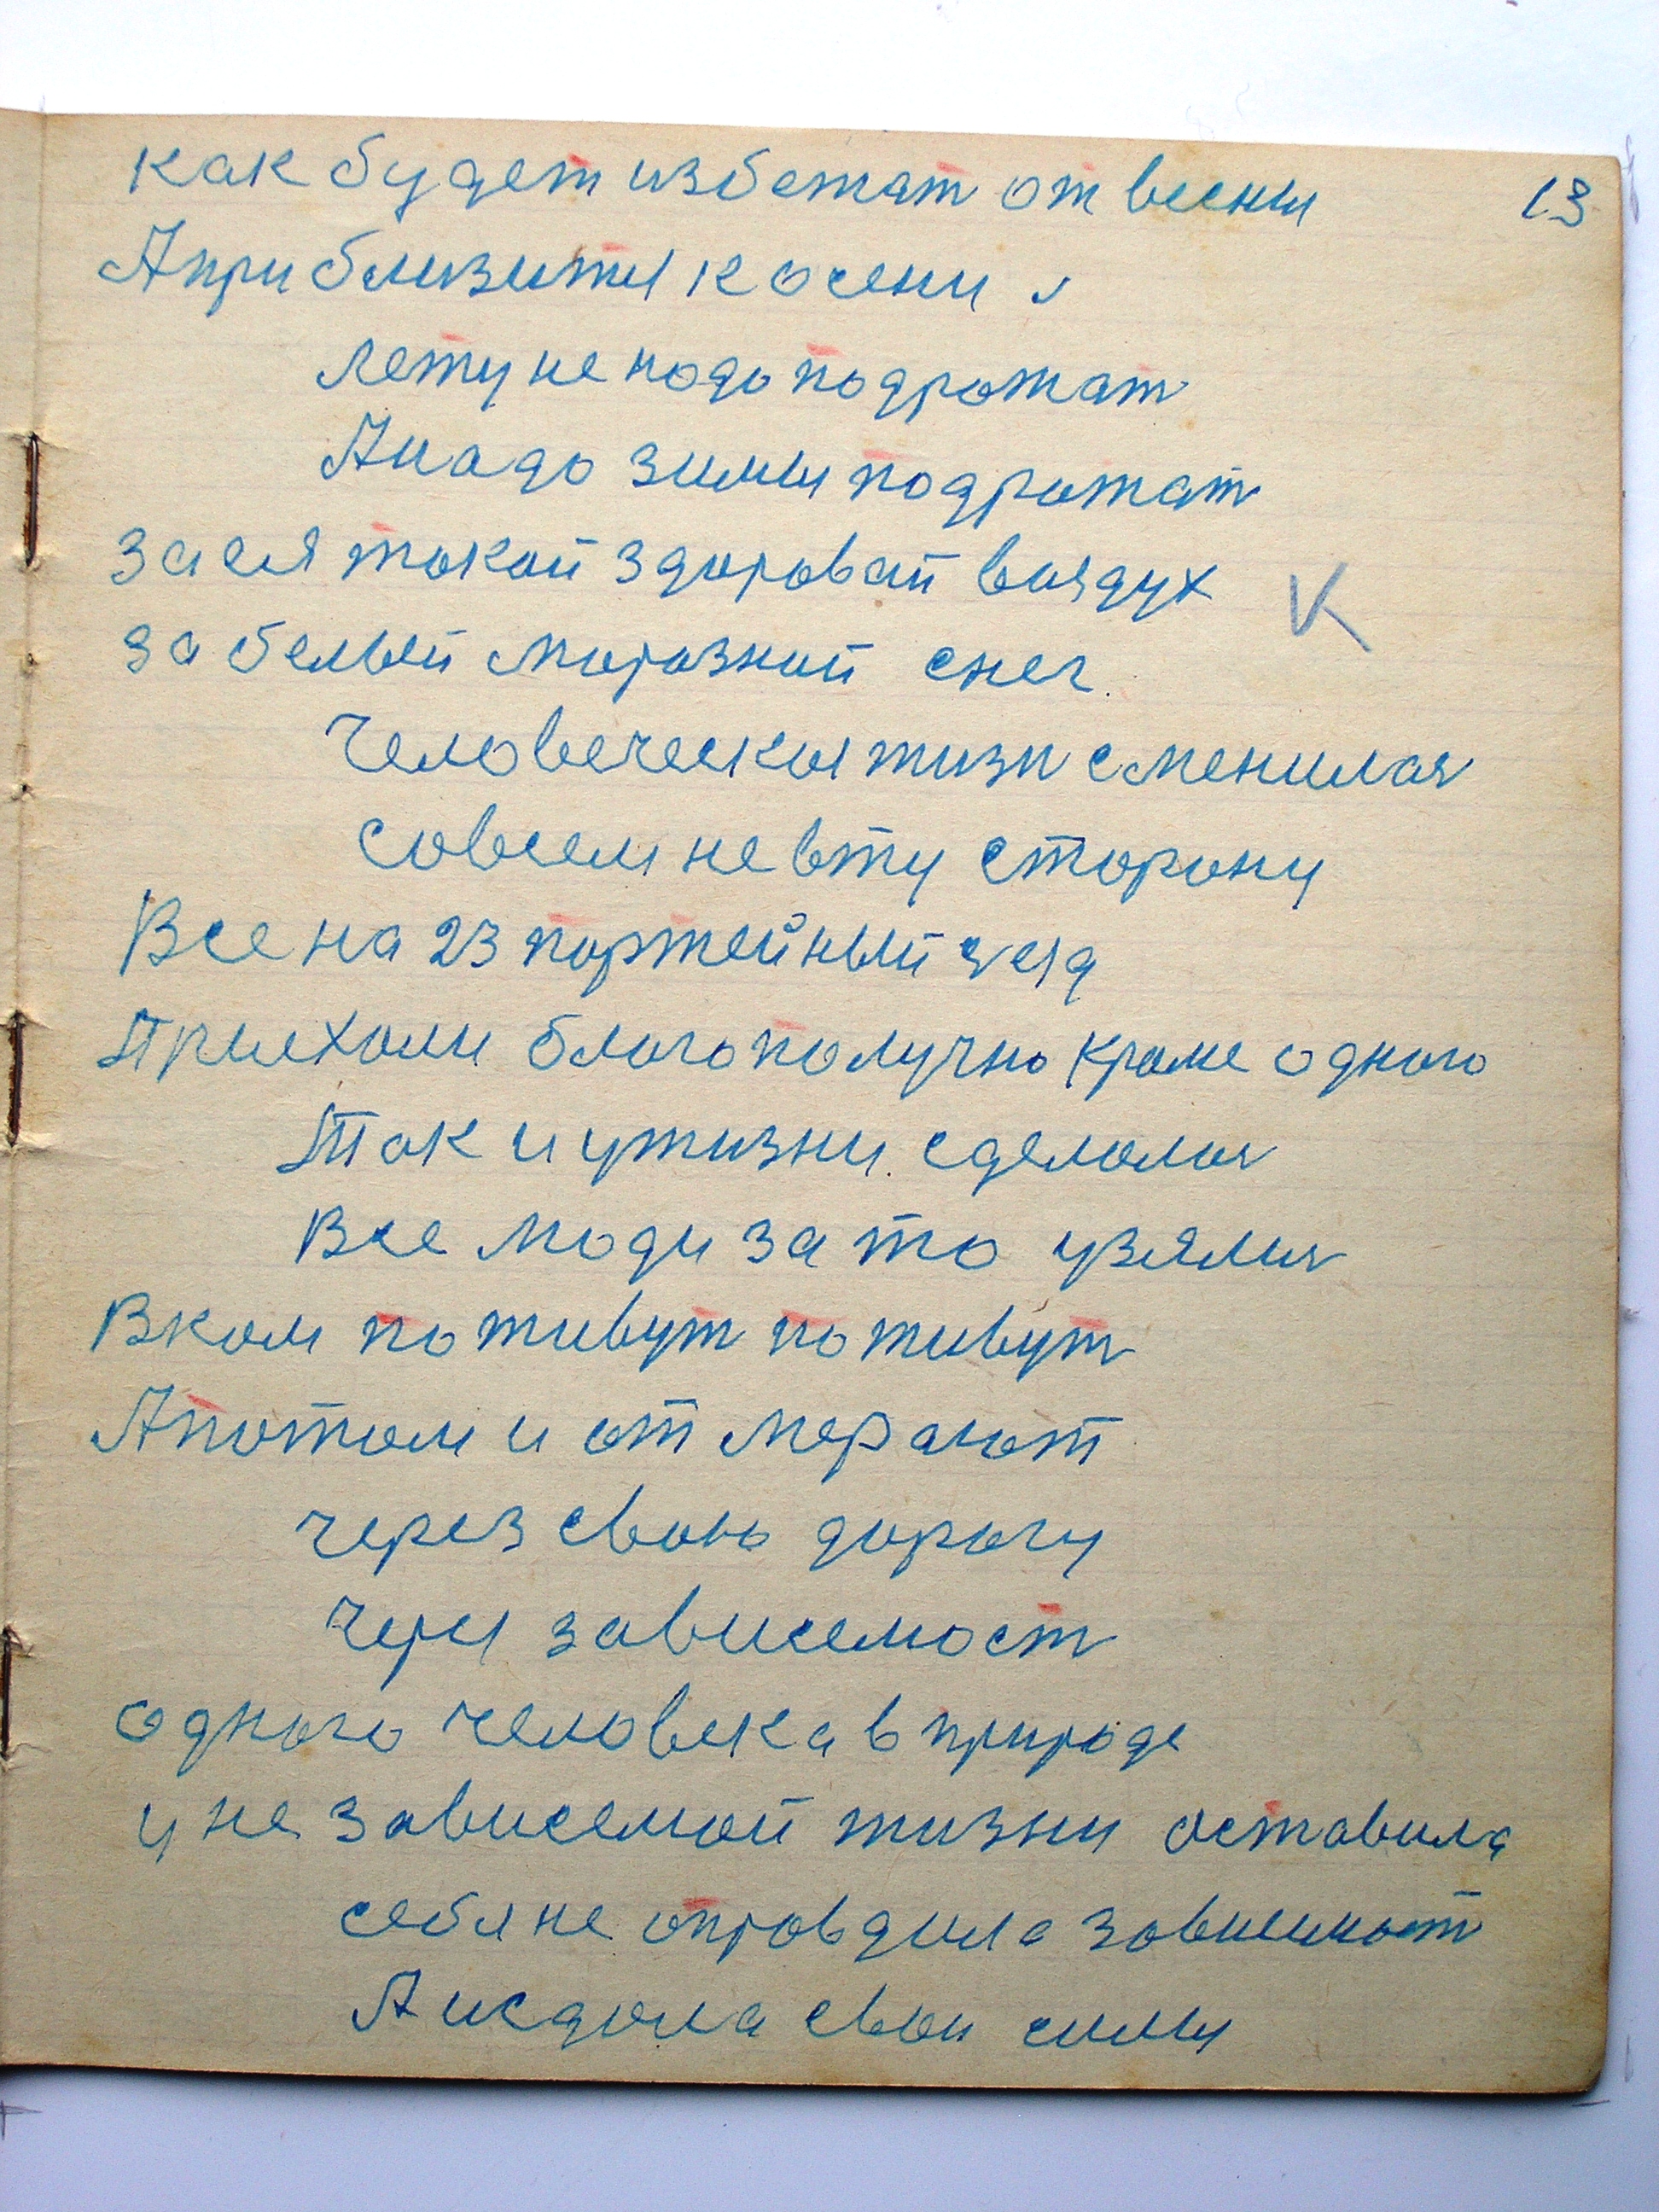 как будет избежат от весны
13
А приблизитя к осени
лету не нодо подрожат
А надо зимы подрожат
за ея токой здоровай воздух
за белый морозной снег.
Человеческыя жизн сменилася
совсем не вту сторону
Все на 23 портейный зезд
Приехоли благополучно кроме одного
Так и ужизни сделолося
Все люди за то узялися
В ком поживут поживут
А потом и от мерают
через свою дорогу
через зависемост
одного человека в природе
у не зависемой жизни оставила
себя не оправдила зависимост
А исдола свои силы